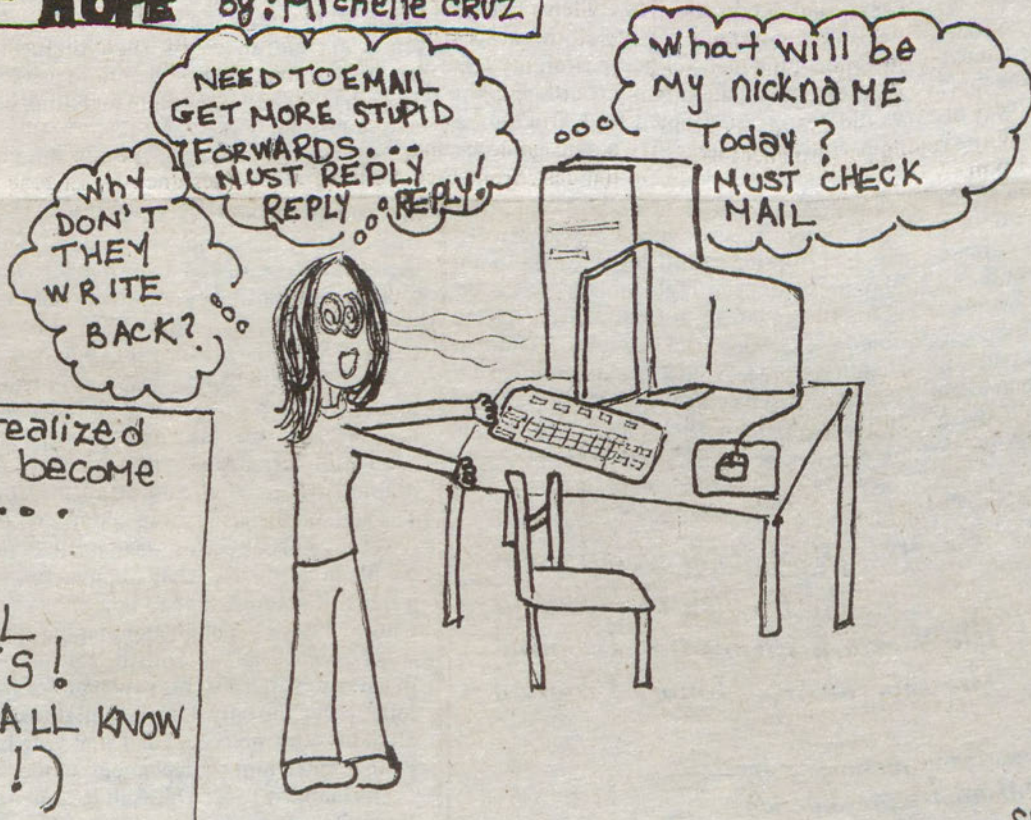 HOPE by: Michelle CRUZ
NEED TO EMAIL
GET MORE STUPID
FORWARDS...
MUST REPLY
REPLY REPLY!
What will be
My nicknaME
Today?
MUST CHECK
MAIL
Why
DON'T
THEY
WRITE
BACK?
realized
become
...
L
'S!
ALL KNOW
!)